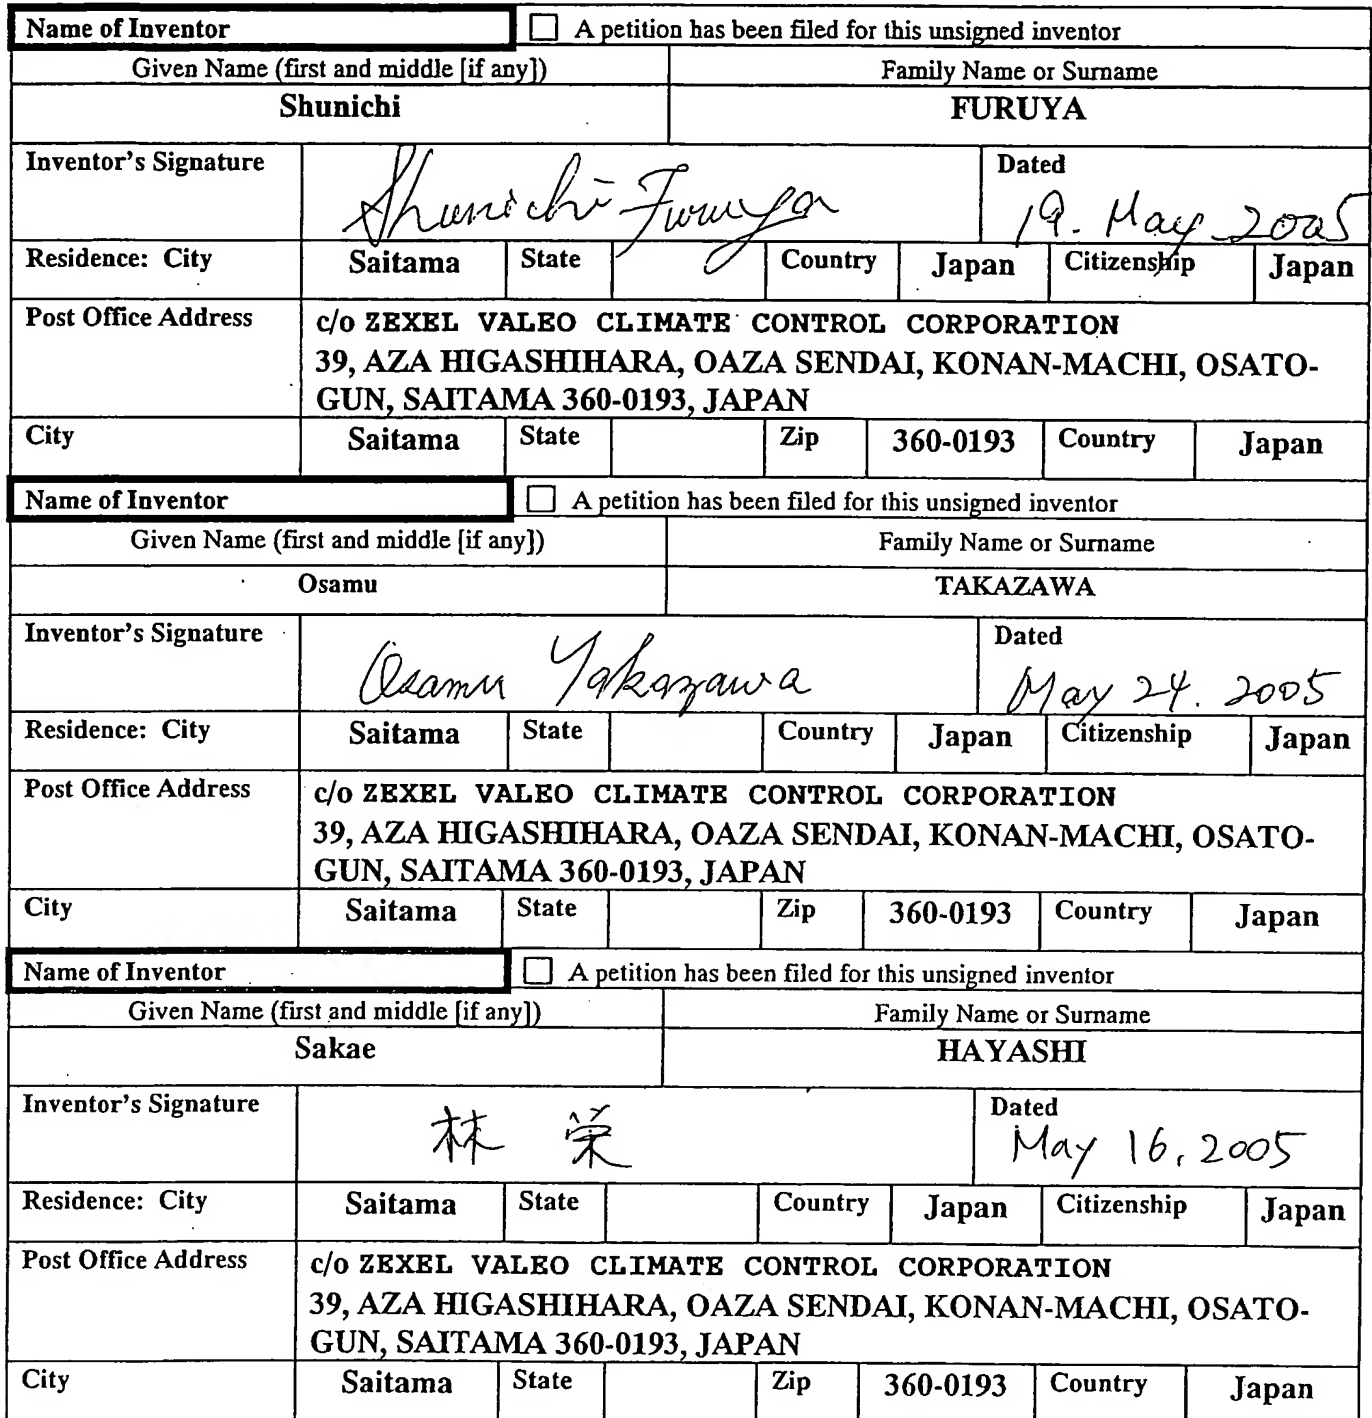 Name of Inventor ☐ A petition has been filed for this unsigned inventor
Given Name (first and middle [if any]) Family Name or Surname
Shunichi FURUYA
Inventor's Signature Shunichi Furuya Dated 19. May 2005
Residence: City Saitama State Country Japan Citizenship Japan
Post Office Address c/o ZEXEL VALEO CLIMATE CONTROL CORPORATION
39, AZA HIGASHIHARA, OAZA SENDAI, KONAN-MACHI, OSATO-
GUN, SAITAMA 360-0193, JAPAN
City Saitama State Zip 360-0193 Country Japan
Name of Inventor ☐ A petition has been filed for this unsigned inventor
Given Name (first and middle [if any]) Family Name or Surname
Osamu TAKAZAWA
Inventor's Signature Osamu Takazawa Dated May 24. 2005
Residence: City Saitama State Country Japan Citizenship Japan
Post Office Address c/o ZEXEL VALEO CLIMATE CONTROL CORPORATION
39, AZA HIGASHIHARA, OAZA SENDAI, KONAN-MACHI, OSATO-
GUN, SAITAMA 360-0193, JAPAN
City Saitama State Zip 360-0193 Country Japan
Name of Inventor ☐ A petition has been filed for this unsigned inventor
Given Name (first and middle [if any]) Family Name or Surname
Sakae HAYASHI
Inventor's Signature 林 栄 Dated May 16, 2005
Residence: City Saitama State Country Japan Citizenship Japan
Post Office Address c/o ZEXEL VALEO CLIMATE CONTROL CORPORATION
39, AZA HIGASHIHARA, OAZA SENDAI, KONAN-MACHI, OSATO-
GUN, SAITAMA 360-0193, JAPAN
City Saitama State Zip 360-0193 Country Japan